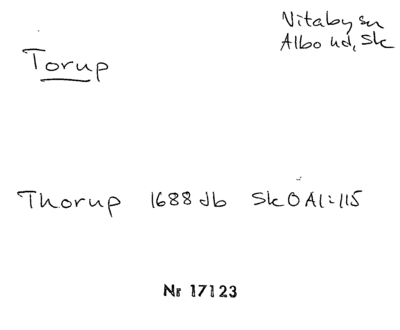 Vitaby sn
Albo hd, Sk
Torup
Thorup 1688 db SkO Al:115
Nr 17123